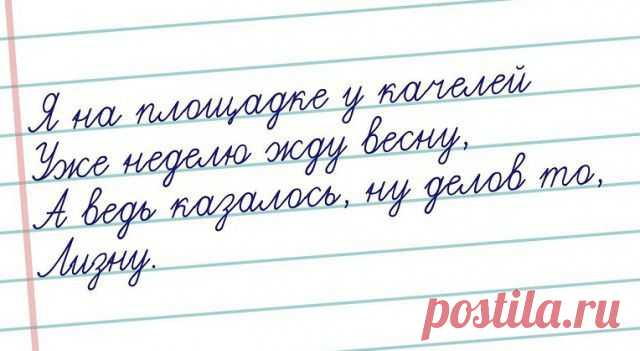 Я на площадке у качелей
Уже неделю жду весну,
А ведь казалось, ну делов то,
Лизну.
postila.ru